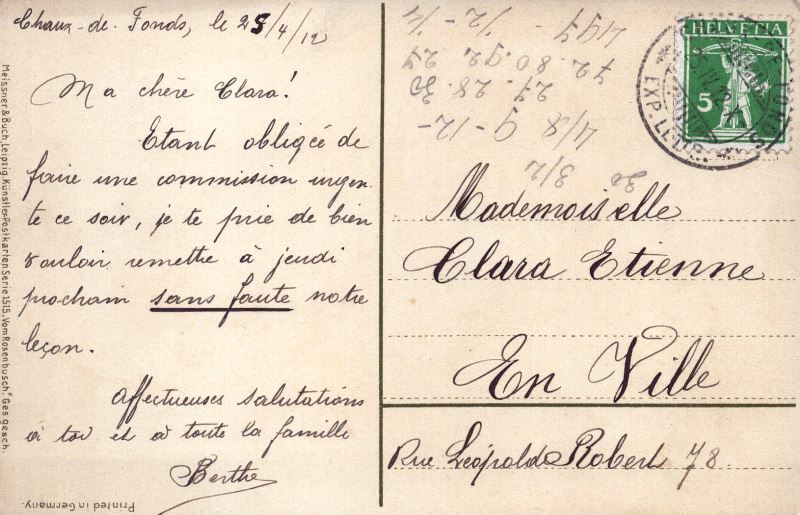 Chaux-de-Fonds, le 23/4/12
Ma chère Clara!
Etant obligée de
faire une commission urgen-
te ce soir, je te prie de bien
vouloir remettre à jeudi
prochain sans faute notre
leçon.
Affectueuses salutations
à toi et à toute la famille
Berthe
Meissner & Buch, Leipzig. Künstler-Postkarten Serie 1515. „Vom Rosenbusch". Ges. gesch.
Printed in Germany.
HELVETIA
5
EXP. LETTR.
Mademoiselle
Clara Etienne
En Ville
Rue Léopold Robert 78